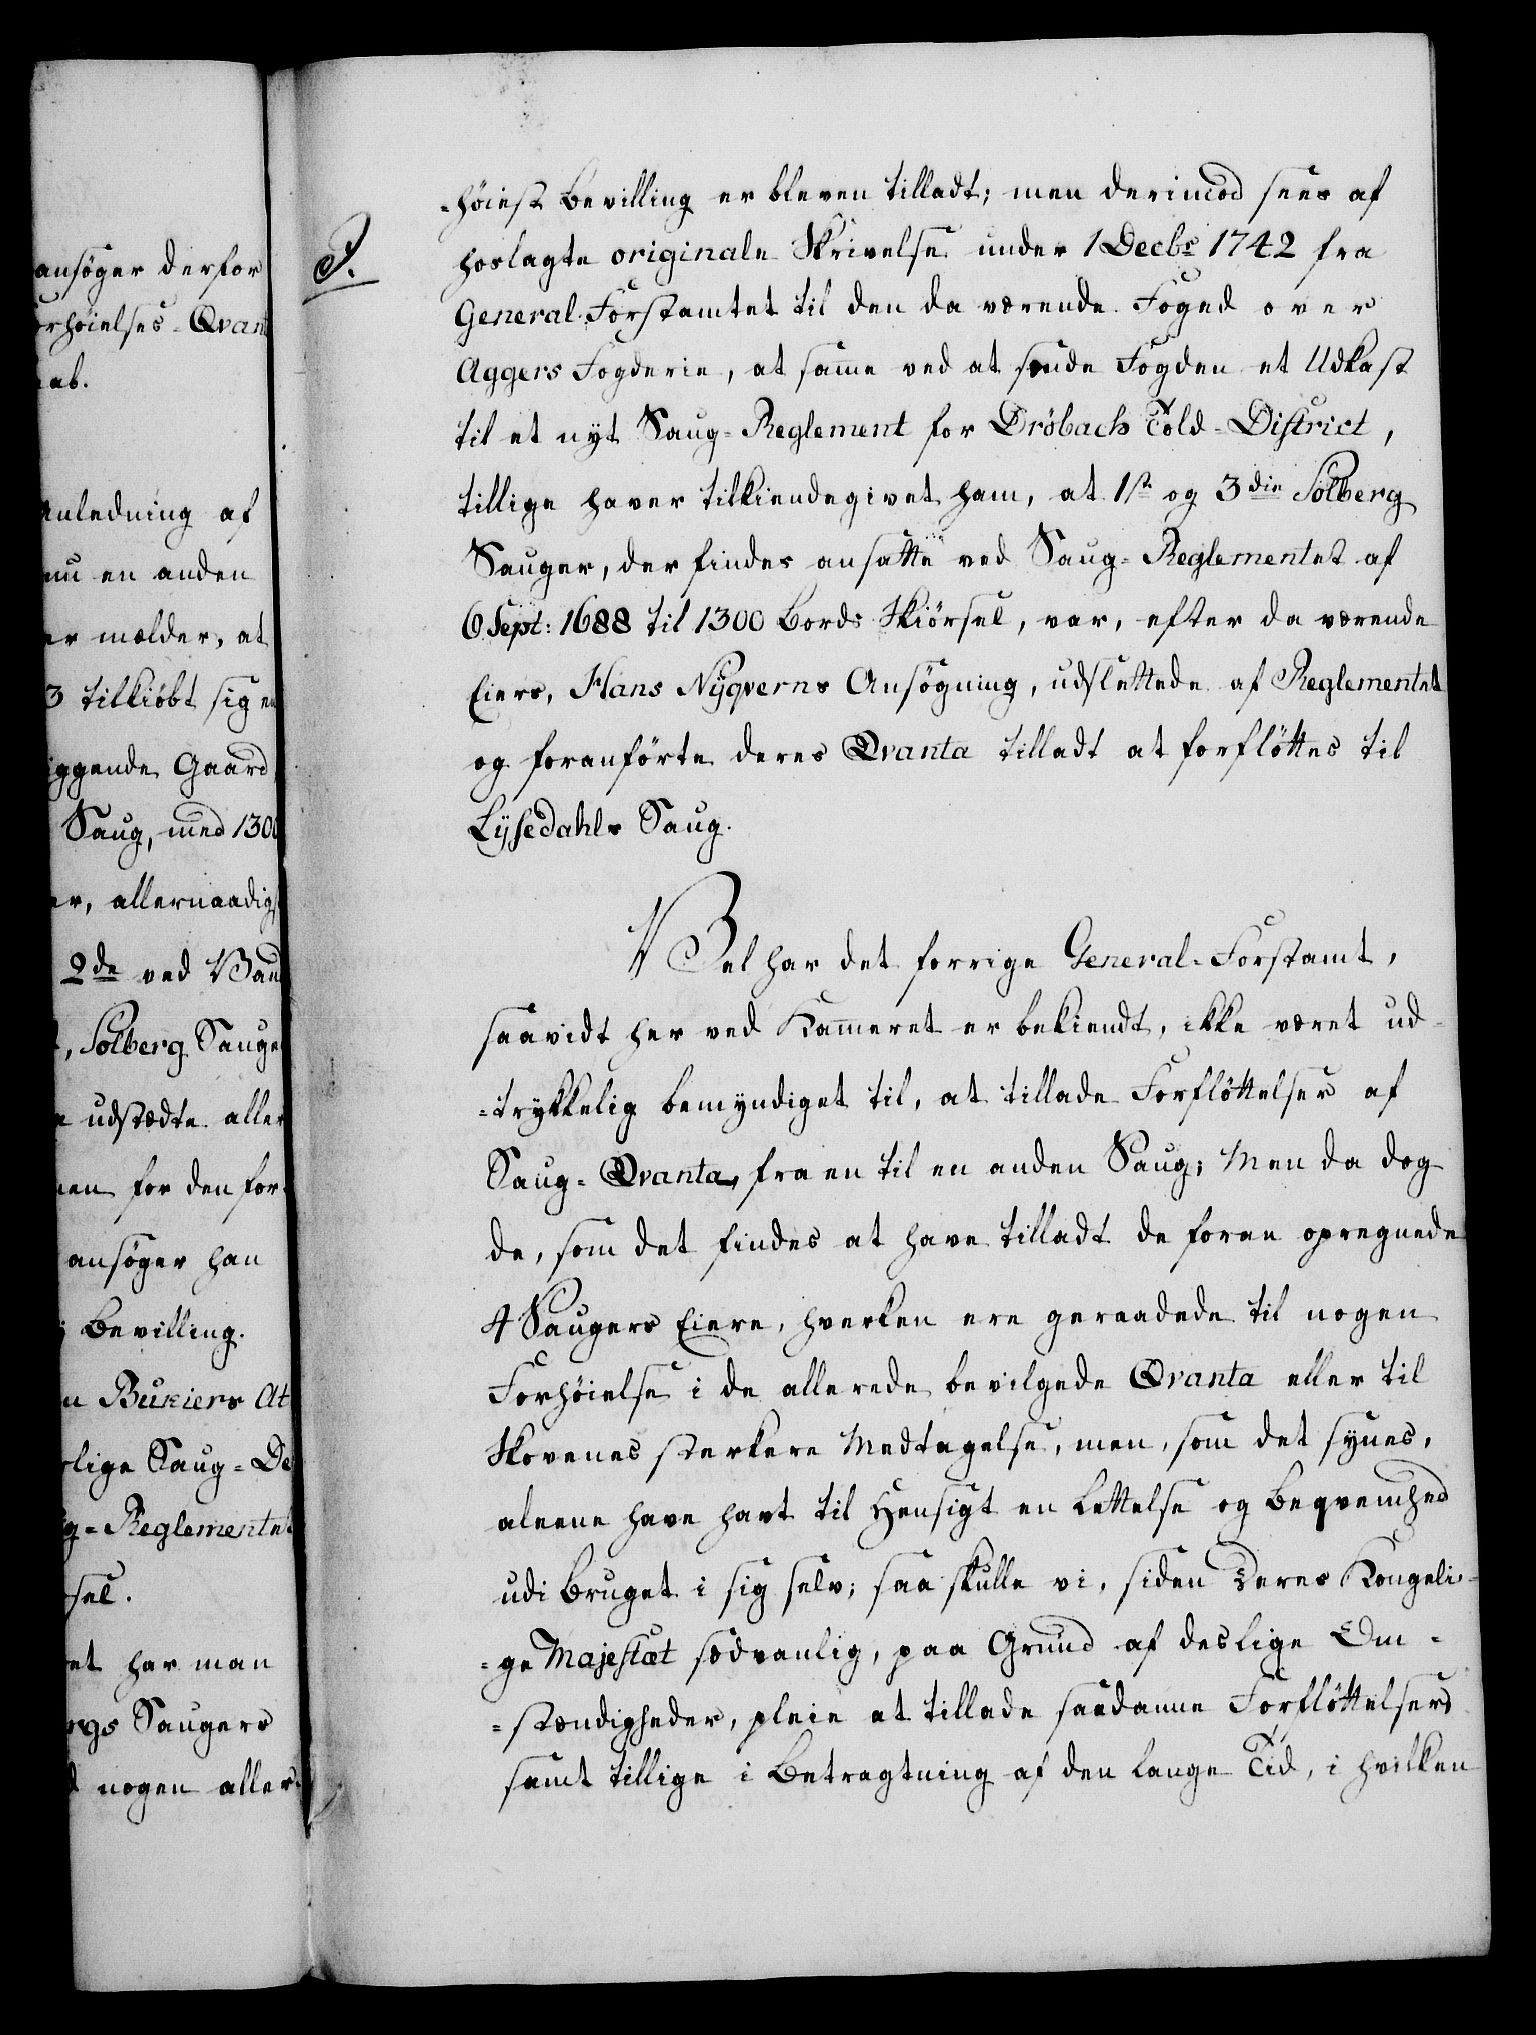 ansøger derfor
orhøielses-Qvant
ab.
Anledning af
nu en anden
er melder, at
3 tilkiøbt sig en
iggende Gaard
Saug, med 1300
er, allernaadigs
2de ved
, Solberg Sauge
udstædte aller
en for den for¬
ansøger han
Bevilling.
n Bukiers At
lige Saug-De
g-Reglementet
sel.
et har man
rgs Saugers
nogen aller-
J.
-høiest Bevilling er bleven tilladt; men derimod sees af
hoslagte originale Skrivelse under 1 Decbr 1742 fra
General-Forstamtet til den da værende Foged over
Aggers Fogderie, at samme ved at sende Fogden et Udkast
til et nyt Saug-Reglement for Dröbachs Told-District,
tillige haver tilkiendegivet ham, at 1ste og 3die Solberg
Sauger, der findes ansatte ved Saug-Reglementet af
6 Sept: 1688 til 1300 Bords Skiørsel, var, efter da værende
Eiers, Hans Nyqverns Ansøgning, udslettede af Reglementet
og foranførte deres Qvanta tilladt at forfløttes til
Lysedahls Saug.
Vel har det forrige General-Forstamt,
saavidt her ved Kammeret er bekiendt, ikke været ud-
-trykkelig bemyndiget til, at tillade Forfløttelser af
Saug-Qvanta, fra en til en anden Saug; Men da dog
de, som det findes at have tilladt de foran opregnede
4 Saugers Eiere, hverken ere geraadede til nogen
Forhøielse i de allerede bevilgede Qvanta eller til
Skovenes sterkere Medtagelse, men, som det synes,
aleene have havt til Hensigt en Lettelse og Beqvemhed
udi Bruget i sig selv; saa skulle vi, siden Deres Kongeli-
-ge Majestæt sædvanlig, paa Grund af deslige Om-
-stændigheder, pleie at tillade saadanne Forfløttelser,
samt tillige i Betragtning af den lange Tid, i hvilken